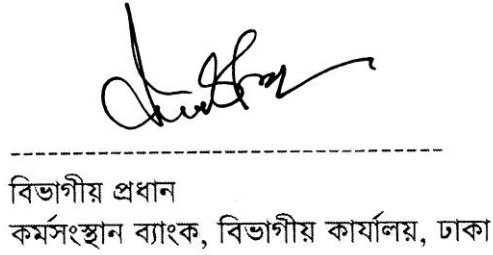 বিভাগীয় প্রধান
কর্মসংস্থান ব্যাংক, বিভাগীয় কার্যালয়, ঢাকা